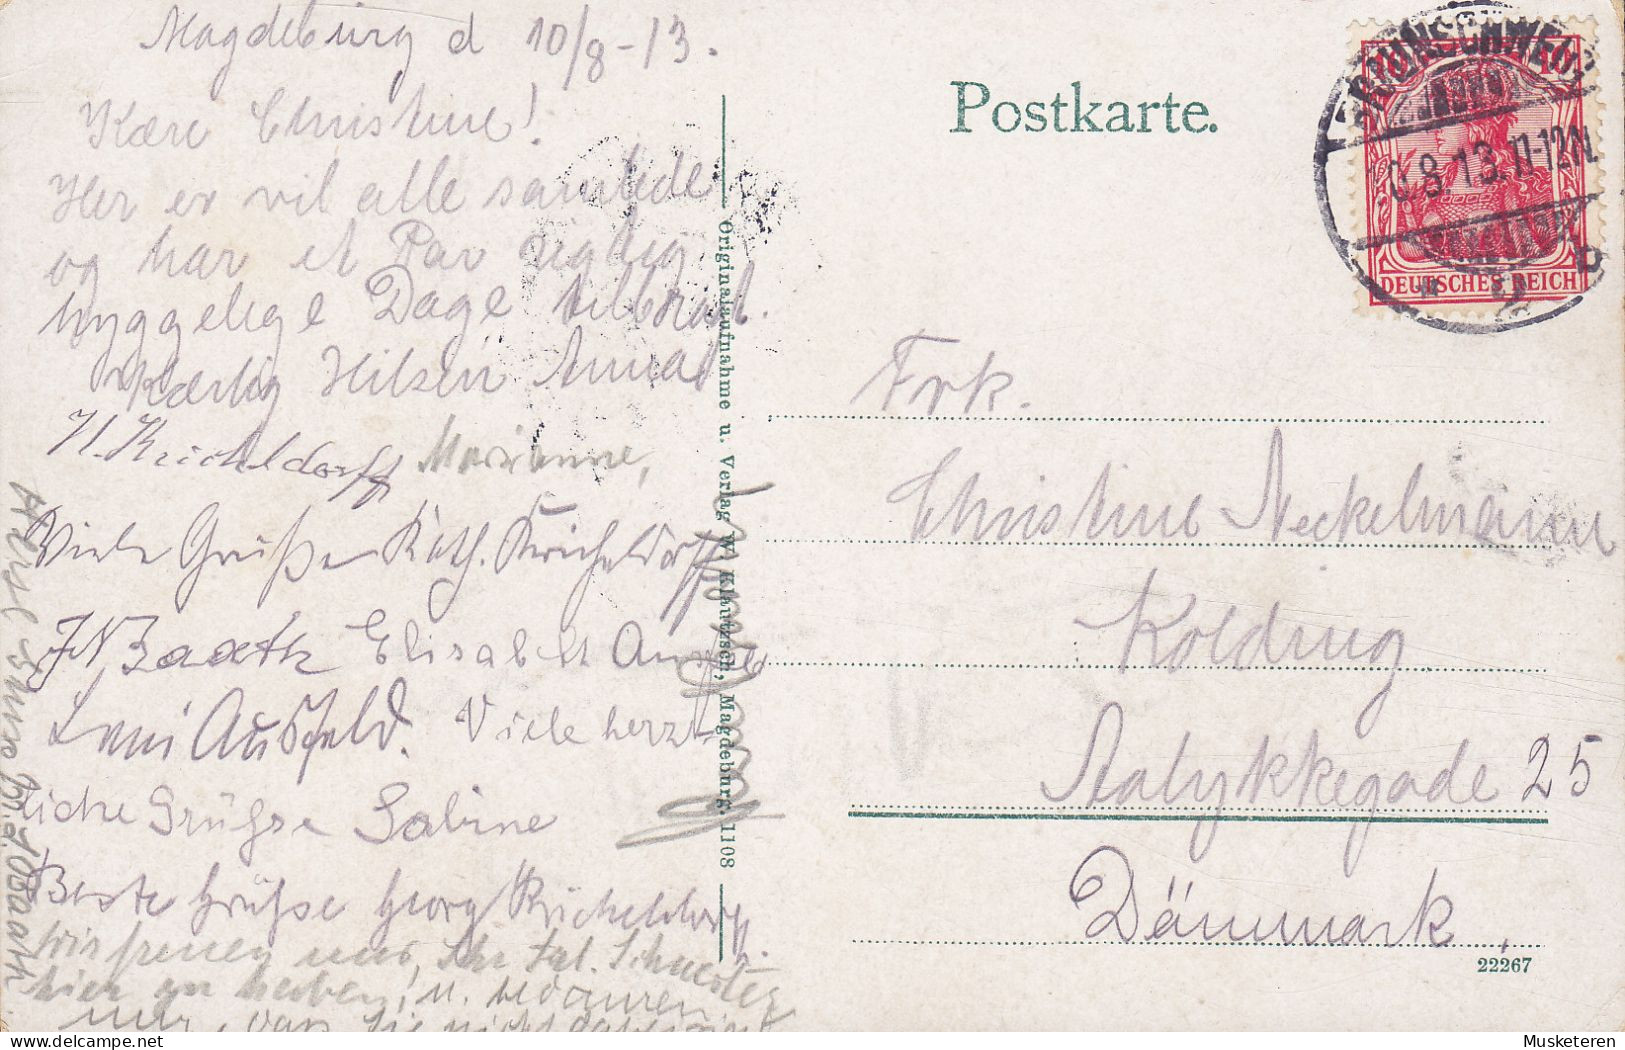 Magdeburg d 10/8-13.
Kære Christine!
Her er vi alle samlede
og har et Par rigtig
hyggelige Dage tilbragt.
Kærlig Hilsen Anna
H. Kricheldorff Marianne,
Viele Grüße Käth. Kricheldorff
Baath Elisabeth
Leni Ausfeld. Viele herz-
liche Grüße Sabine
Beste Grüße Georg Kricheldorff.
Wir freuen uns, Ihr Frl. Schwester
hier zu haben, u. bedauern
nur, dass Sie nicht dabei sind
Originalaufnahme u. Verlag W. Klautzsch, Magdeburg. 1108
Postkarte.
BRAUNSCHWEIG
10.8.13.11-12N
DEUTSCHES REICH
Frk.
Christine Neckelmann
Kolding
Aalykkegade 25
Dänmark,
22267
Musketeren